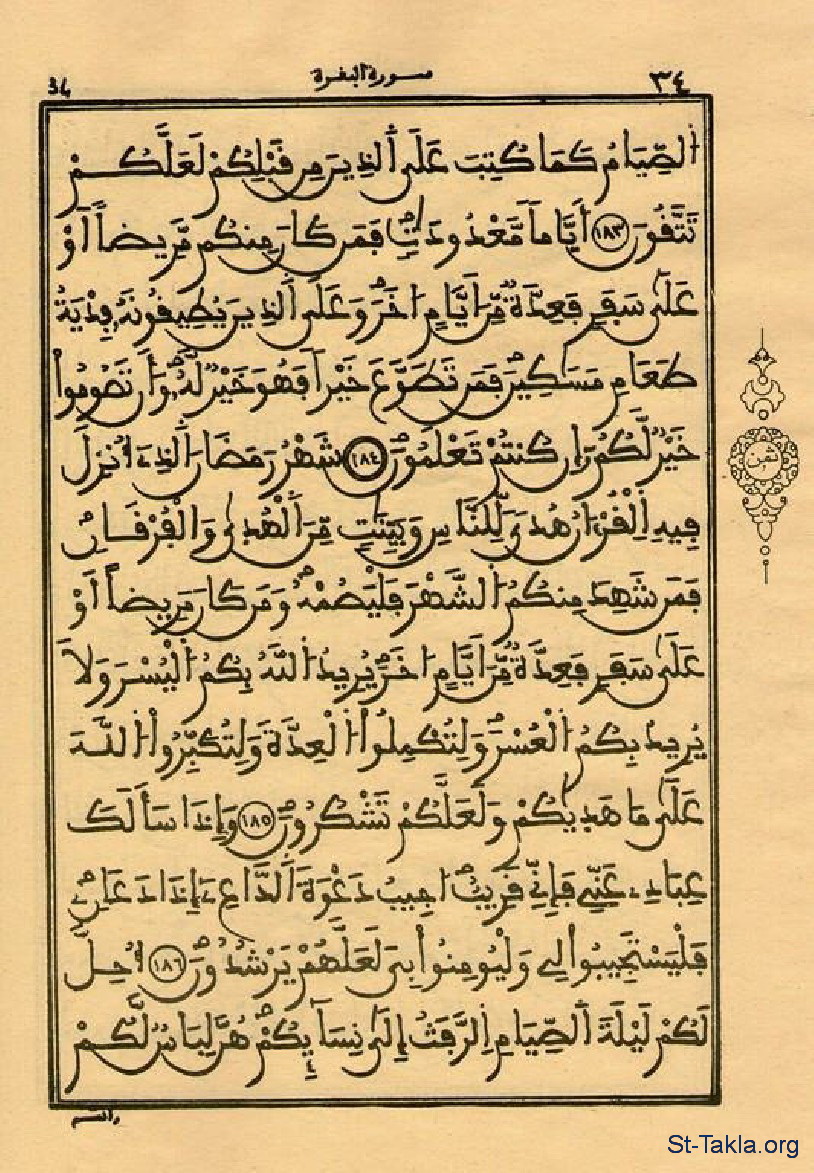 ٣٤ سورة البقرة 34
اَلصِّيَامُ كَمَا كُتِبَ عَلَى اَلذِينَ مِن قَبْلِكُمْ لَعَلَّكُمْ
تَتَّقُونَ ١٨٣ أَيَّاماً مَّعْدُودَٰتٍ فَمَن كَانَ مِنكُم مَّرِيضاً أَوْ
عَلَىٰ سَفَرٍ فَعِدَّةٌ مِّنَ اَيَّامٍ اُخَرَ وَعَلَى اَلذِينَ يُطِيقُونَهُ فِدْيَةُ
طَعَامِ مَسَٰكِينَ فَمَن تَطَوَّعَ خَيْراً فَهُوَ خَيْرٌ لَّهُ وَأَن تَصُومُوا
خَيْرٌ لَّكُمُ إِن كُنتُمْ تَعْلَمُونَ ١٨٤ شَهْرُ رَمَضَانَ اَلذِي أُنزِلَ
فِيهِ اِلْقُرْءَانُ هُدىً لِّلنَّاسِ وَبَيِّنَٰتٍ مِّنَ اَلْهُدَىٰ وَالْفُرْقَانِ
فَمَن شَهِدَ مِنكُمُ الشَّهْرَ فَلْيَصُمْهُ وَمَن كَانَ مَرِيضاً أَوْ
عَلَىٰ سَفَرٍ فَعِدَّةٌ مِّنَ اَيَّامٍ اُخَرَ يُرِيدُ اللَّهُ بِكُمُ الْيُسْرَ وَلَا
يُرِيدُ بِكُمُ الْعُسْرَ وَلِتُكْمِلُوا الْعِدَّةَ وَلِتُكَبِّرُوا اللَّهَ
عَلَىٰ مَا هَدَىٰكُمْ وَلَعَلَّكُمْ تَشْكُرُونَ ١٨٥ وَإِذَا سَأَلَكَ
عِبَادِي عَنِّي فَإِنِّي قَرِيبٌ اُجِيبُ دَعْوَةَ اَلدَّاعِ إِذَا دَعَانِ
فَلْيَسْتَجِيبُوا لِي وَلْيُومِنُوا بِي لَعَلَّهُمْ يَرْشُدُونَ ١٨٦ أُحِلَّ
لَكُمْ لَيْلَةَ اَلصِّيَامِ اِلرَّفَثُ إِلَىٰ نِسَآئِكُمْ هُنَّ لِبَاسٌ لَّكُمْ
وأنتم
ثمن
St-Takla.org